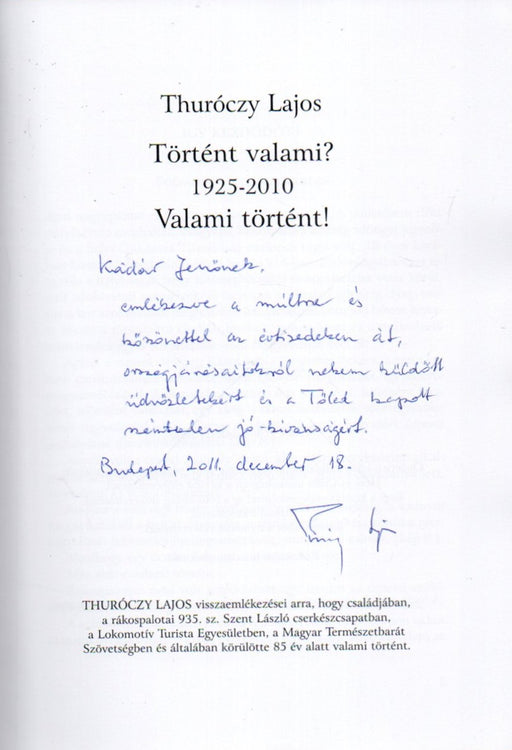 Thuróczy Lajos
Történt valami?
1925-2010
Valami történt!
Kádár Jenőnek,
emlékezve a múltra és
köszönettel az évtizedeken át,
országjárásaitokról nekem küldött
üdvözletekért és a Tőled kapott
számtalan jó-kívánságért.
Budapest, 2011. december 18.
THURÓCZY LAJOS visszaemlékezései arra, hogy családjában,
a rákospalotai 935. sz. Szent László cserkészcsapatban,
a Lokomotív Turista Egyesületben, a Magyar Természetbarát
Szövetségben és általában körülötte 85 év alatt valami történt.